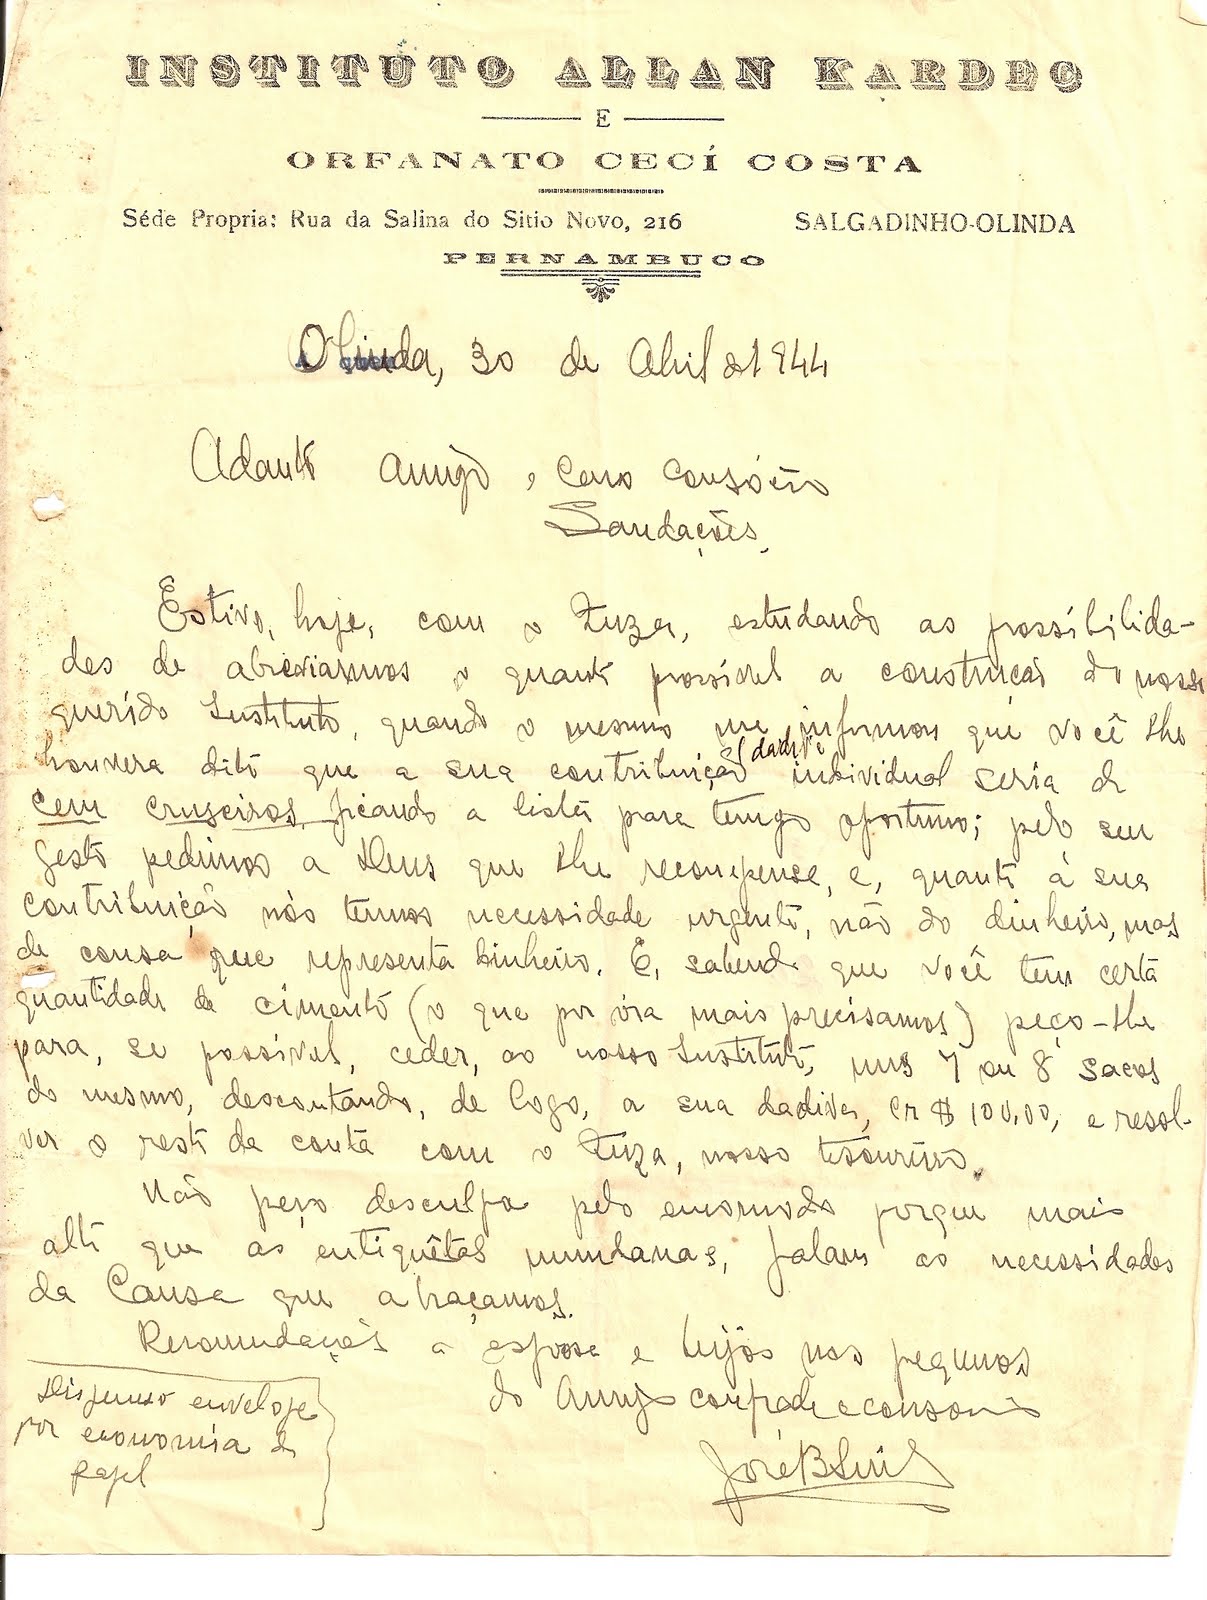 INSTITUTO ALLAN KARDEC
E
ORFANATO CECÍ COSTA
Séde Propria: Rua da Salina do Sitio Novo, 216 SALGADINHO-OLINDA
PERNAMBUCO
Olinda, 30 de Abril de 1944
Adauto amigo, caro consócio
Saudações,
Estive, hoje, com o Zuza, estudando as possibilida-
des de abreviarmos o quanto possivel a construção do nosso
querido Instituto, quando o mesmo me informou que você lhe
houvera dito que a sua contribuição (dadiva individual seria de
cem cruzeiros, ficando a lista para tempo oportuno; pelo seu
gesto pedimos a Deus que lhe recompense, e, quanto á sua
contribuição nós temos necessidade urgente, não do dinheiro, mas
de cousa que representa dinheiro. E, sabendo que você tem certa
quantidade de cimento (o que por óra mais precisamos) peço-lhe
para, se possivel, ceder, ao nosso Instituto, uns 7 ou 8 sacos
do mesmo, descontando, de logo, a sua dadiva, Cr$ 100,00, e resol-
ver o resto da conta com o Zuza, nosso tesoureiro.
Não peço desculpa pelo encomodo porque mais
alto que as entiquêtas mundanas, falam as necessidades
da Causa que abraçamos.
Recomendações a esposa e beijos nos pequenos
do Amigo compadre e consocio
José B
Dispenso enveloje
por economia de
papel